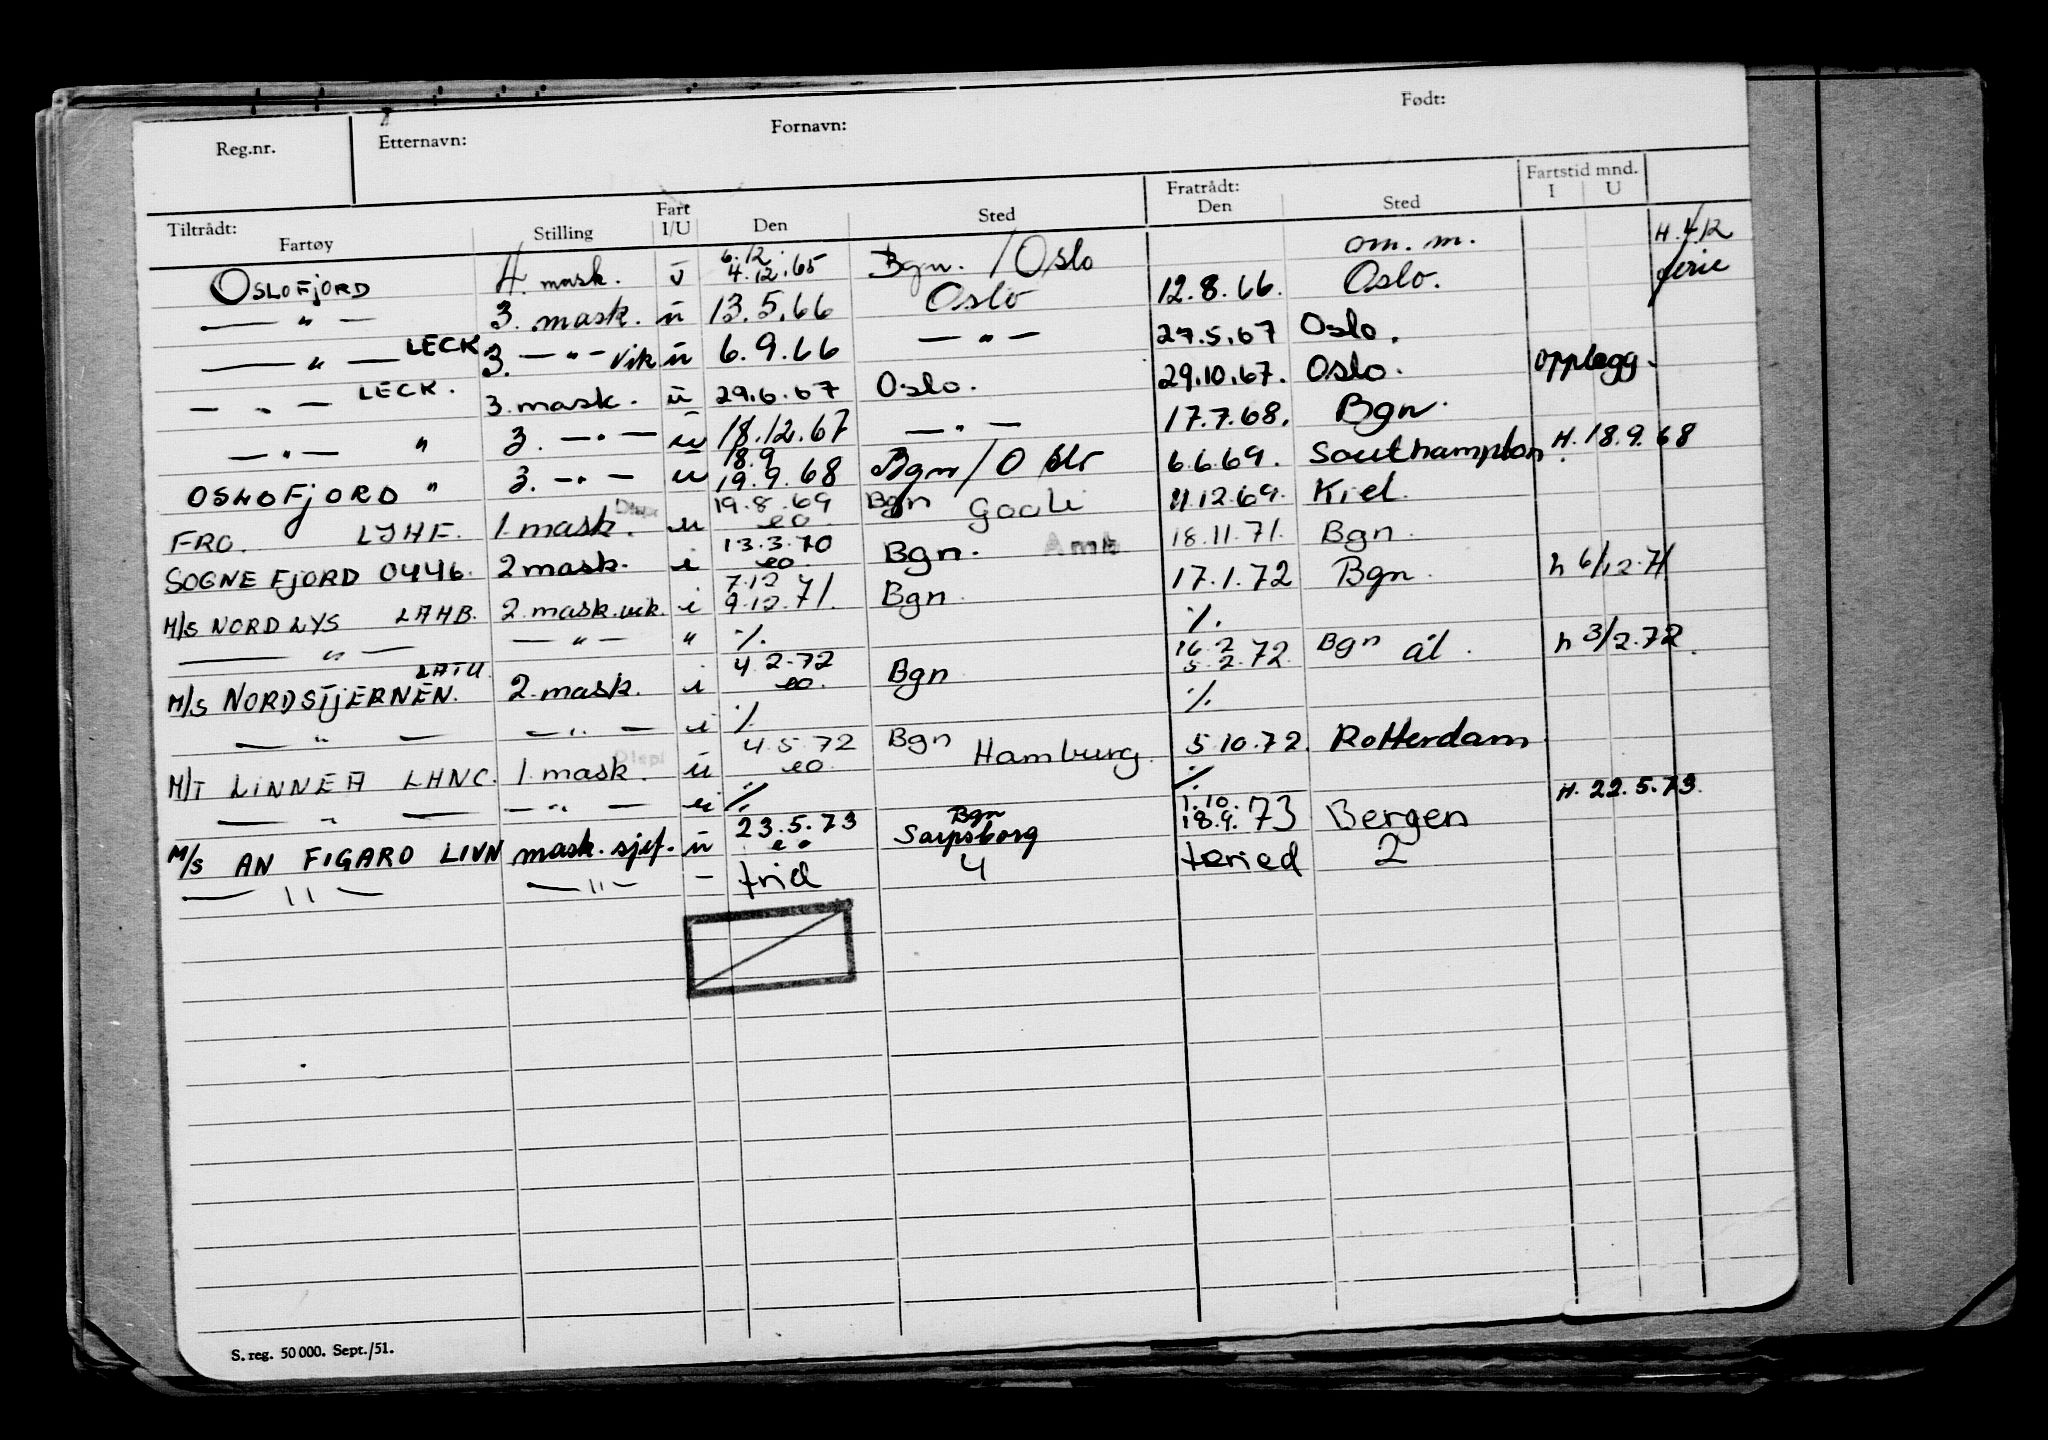 Reg.nr. Etternavn: Fornavn: Født:
Tiltrådt: Fartøy Stilling Fart I/U Den Sted Fratrådt: Den Sted Fartstid mnd. I U
OSLOFJORD 4. mask. ū 6.12. 4.12.65 Bgn. / Oslo om. m. H. 4/12 ferie
— " — 3. mask. ū 13.5.66 Oslo 12.8.66. Oslo.
— " — LECK 3. — " — vik ū 6.9.66 — " — 27.5.67 Oslo.
— " — LECK. 3. mask. ū 29.6.67 Oslo. 29.10.67. Oslo. opplegg.
— " — " 3. — " — ū 18.12.67 — " — 17.7.68. Bgn.
OSLOFJORD " 3. — " — ū 18.9 19.9.68 Bgn / Oslo 6.6.69. Southampton H. 18.9.68
FRO. LJHF. 1. mask. Disp u 19.8.69 eo Bgn 11.12.69. Kiel.
SOGNEFJORD 0446. 2 mask. i 13.3.70 eo. Bgn. Amb 18.11.71. Bgn.
M/S NORDLYS LAHB. 2. mask. vik. i 7.12 9.12.71. Bgn 17.1.72 Bgn. h 6/12.71
— " — — " — " ./. ./.
M/S NORDSTJERNEN. LATU. 2. mask. i 4.2.72 eo. Bgn 16.2 5.2.72. Bgn ål. h 3/2.72.
— " — — " — i ./. ./.
M/T LINNEA LHNC. 1. mask. Displ ū 4.5.72 eo Bgn Hamburg. 5.10.72. Rotterdam
— " — — " — ./. ./.
M/S AN FIGARO LIVN mask. sjef. ū 23.5.73 eo Bgn Sarpsborg 1.10. 18.9.73 Bergen H. 22.5.73.
— " — — " — – frid 4 feried 2
S. reg. 50 000. Sept./51.